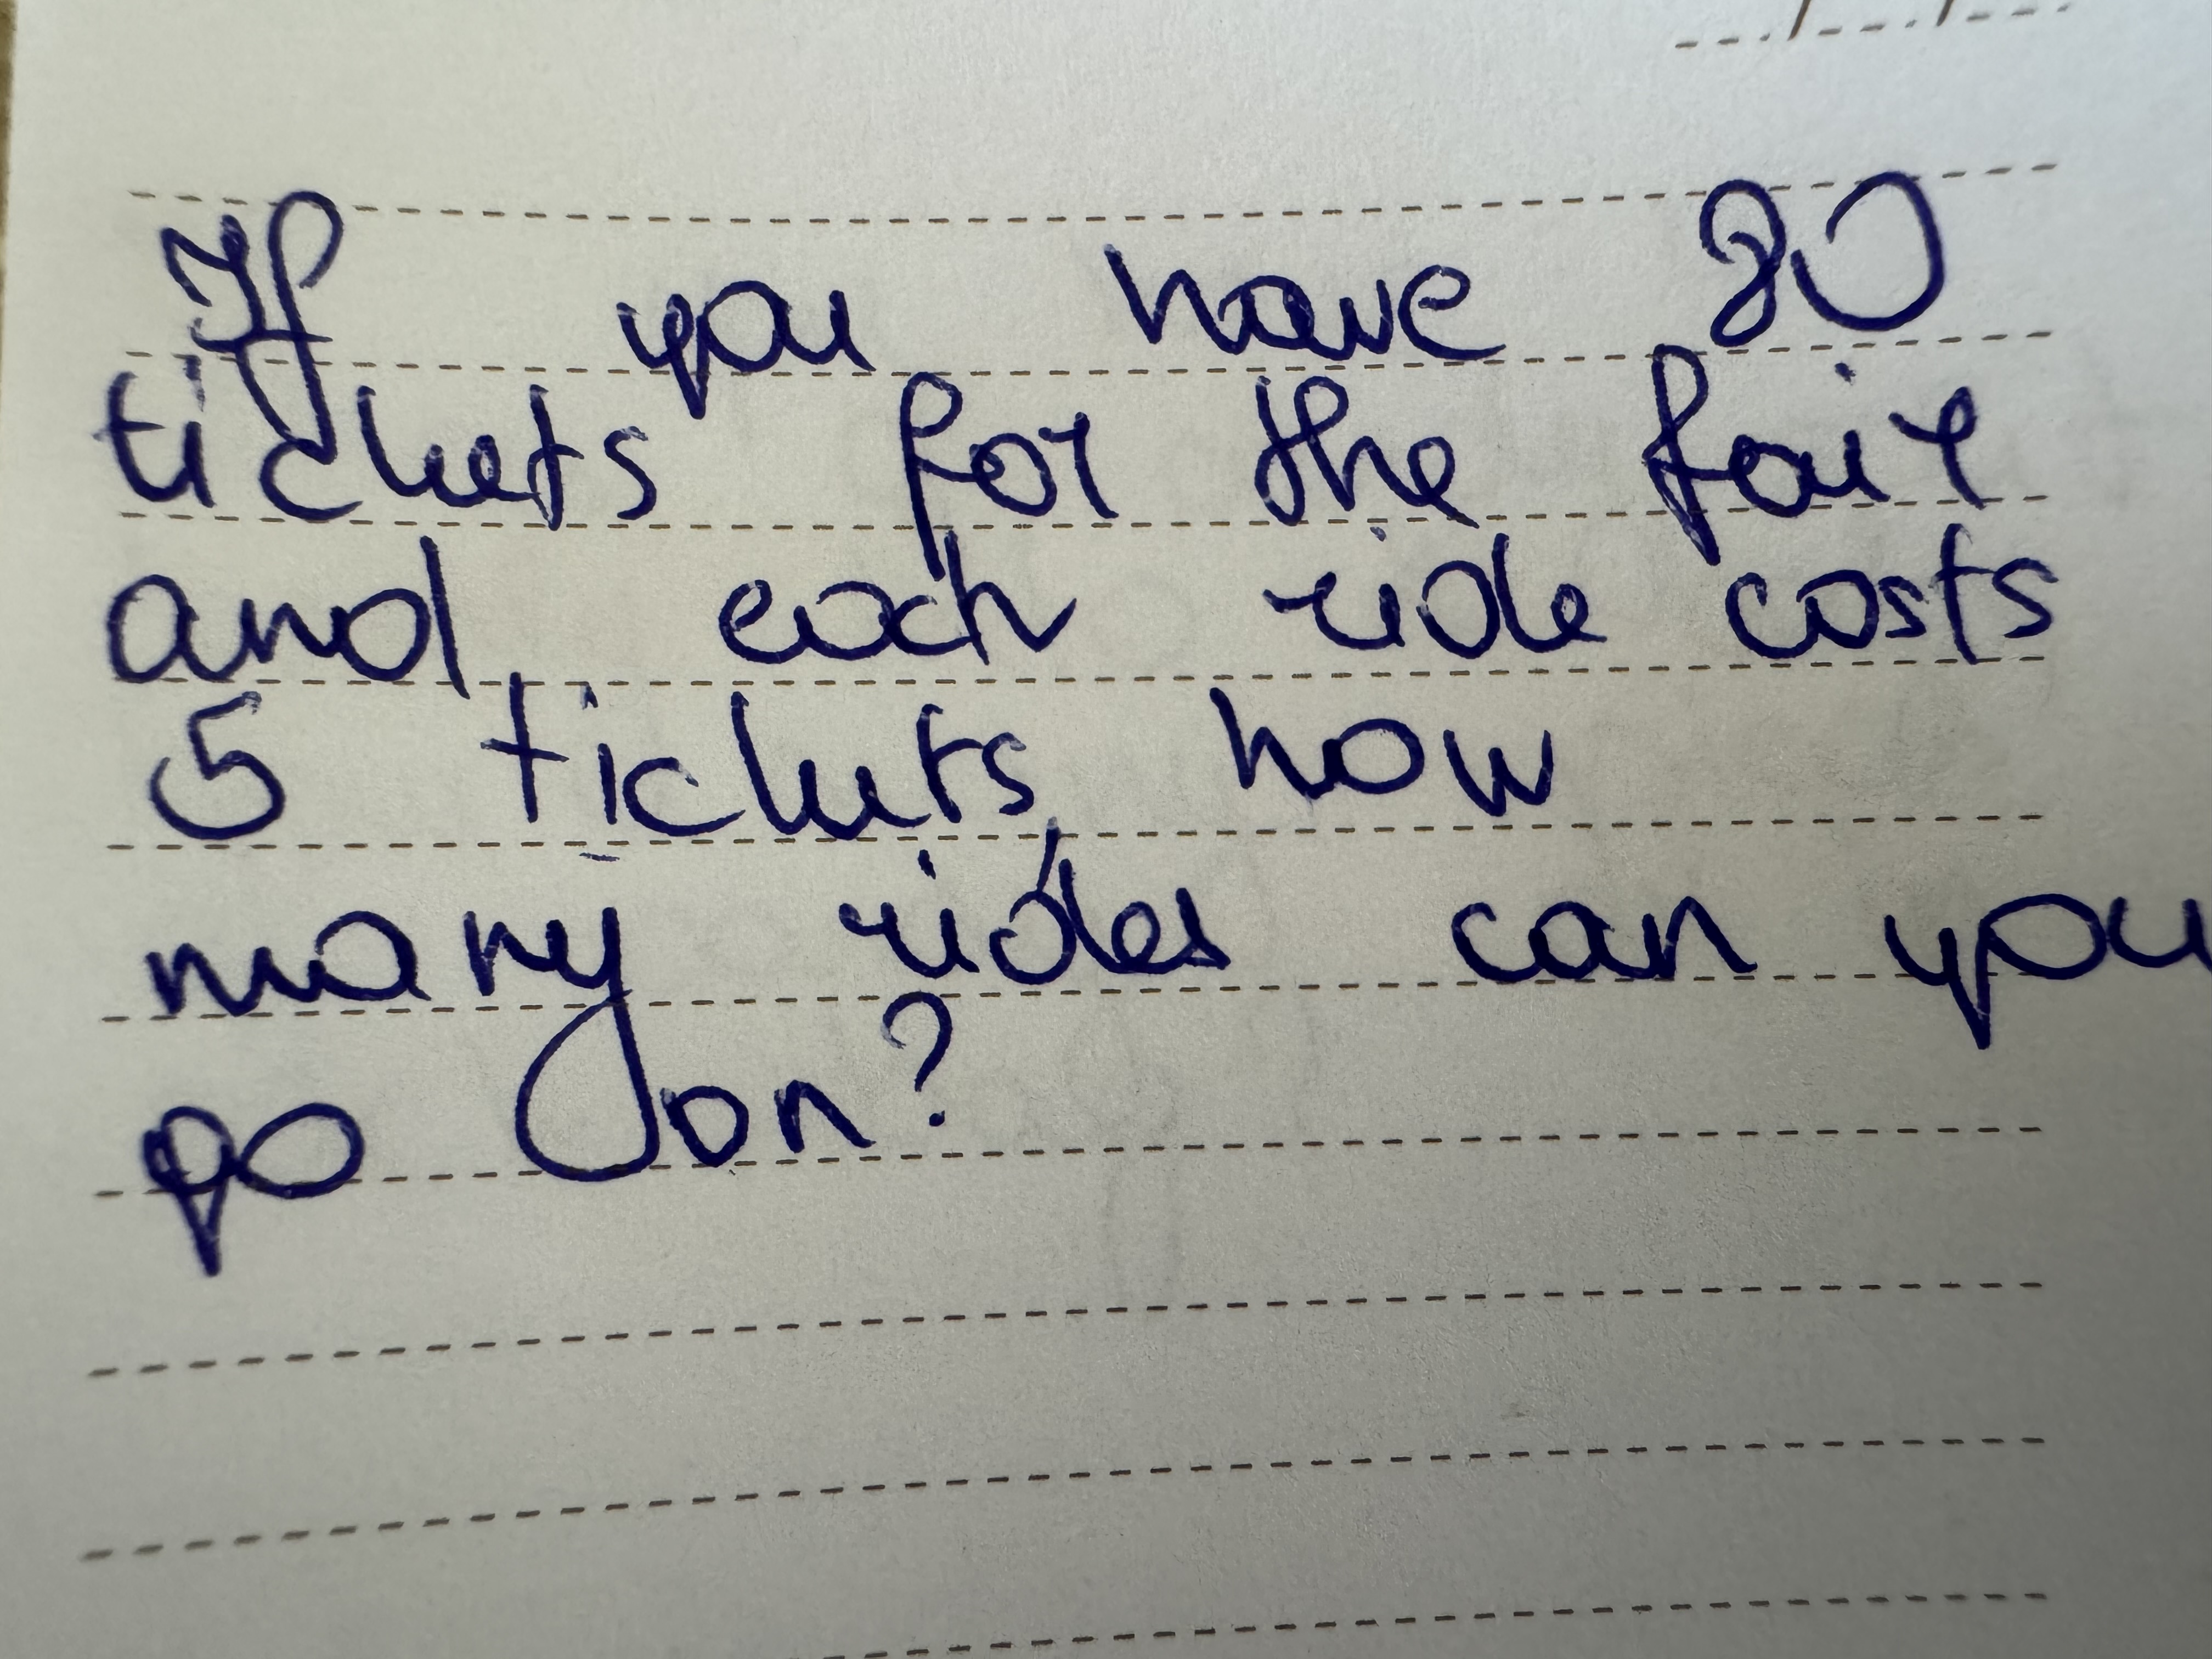 If you have 30
tickets for the fair
and each ride costs
5 tickets, how
many rides can you
go on?